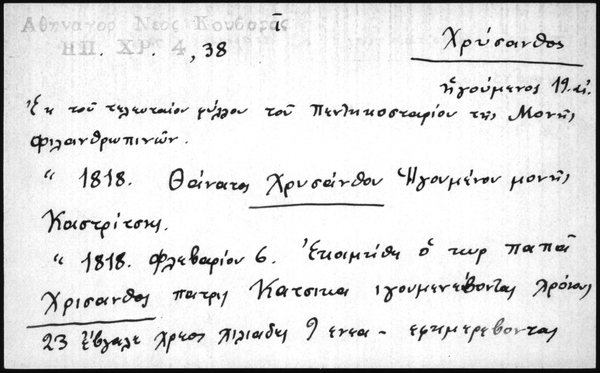 Αθηναγορ Νεος Κουβαράς
ΗΠ. ΧΡ 4, 38
Χρύσανθος
ἡγούμενος 19 αἰ.
Ἐκ τοῦ τελευταίου φύλλου τοῦ Πεντηκοσταρίου τῆς Μονῆς
Φιλανθρωπινῶν.
" 1818. Θάνατος Χρυσάνθου Ἡγουμένου μονῆς
Καστρίτσης.
" 1818. Φλεβαρίου 6. Ἐκοιμίθη ὁ κυρ παπᾶ
Χρισανθος πατρις Κατσικα ιγουμενεβοντας χρόνους
23 έβγαλε χρεος χιλιαδες 9 ενεα - εφημερεβοντας